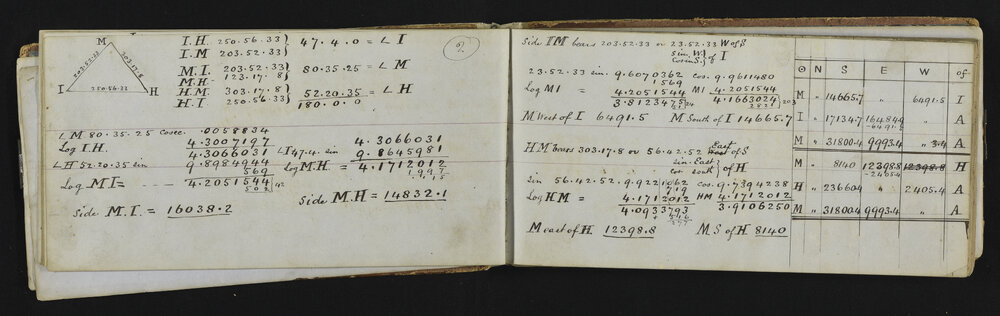 M
203.52.33
203.17.8
I 250.56.33 H
I.H. 250.56.33 } 47.4.0 = ∠ I
I.M 203.52.33 }
M.I. 203.52.33 } 80.35.25 = ∠ M
M.H. 123.17.8 }
H.M. 303.17.8 } 52.20.35 = ∠ H
H.I 250.56.33 } 180.0.0
∠M 80.35.25 cosec. .0058834
Log I.H. 4.3007197 4.3066031
4.3066031 ∠I 47.4. sin 9.8645981
∠H 52.20.35 sin 9.8984944 Log M.H. = 4.1712012
569 1997
Log MI = 4.2051544 15
502 42
Side M.I. = 16038.2 Side M.H = 14832.1
Side IM bears 203.52.33 or 23.52.33 W of S
Sin. W } of I
Cosin S. }
23.52.33 sin. 9.6070362 cos. 9.9611480
1569
Log MI = 4.2051544 MI 4.2051544
3.8123475 4.1663024 203
2821
M West of I 6491.5 M South of I 14665.7
HM bears 303.17.8 or 56.42.52 East of S
sin. East } of H
cos south }
Sin 56.42.52. 9.9221062 cos. 9.7394238
719
Log HM = 4.1712012 HM 4.1712012
4.0933793 3.9106250
M east of H. 12398.8 M S of H 8140
⊙ N S E W of
M " 14665.7 " 6491.5 I
I " 17134.7 16484.9 A
6491.5
M " 31800.4 9993.4 " A
M " 8140 12398.8 12398.8 H
H " 23660.4 " 2405.4 A
M " 31800.4 9993.4 " A